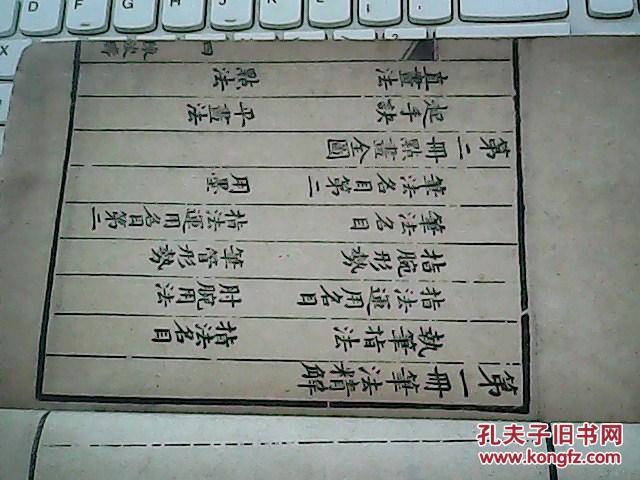 第一冊筆法精解
執筆指法 指法名目
指法運用名目 肘腕用法
指腕形勢 筆管形勢
筆法名目 指法運用名目第二
筆法名目第二 用墨
第二冊點畫全圖
起手訣 平畫法
直畫法 點法
孔夫子旧书网
www.kongfz.com